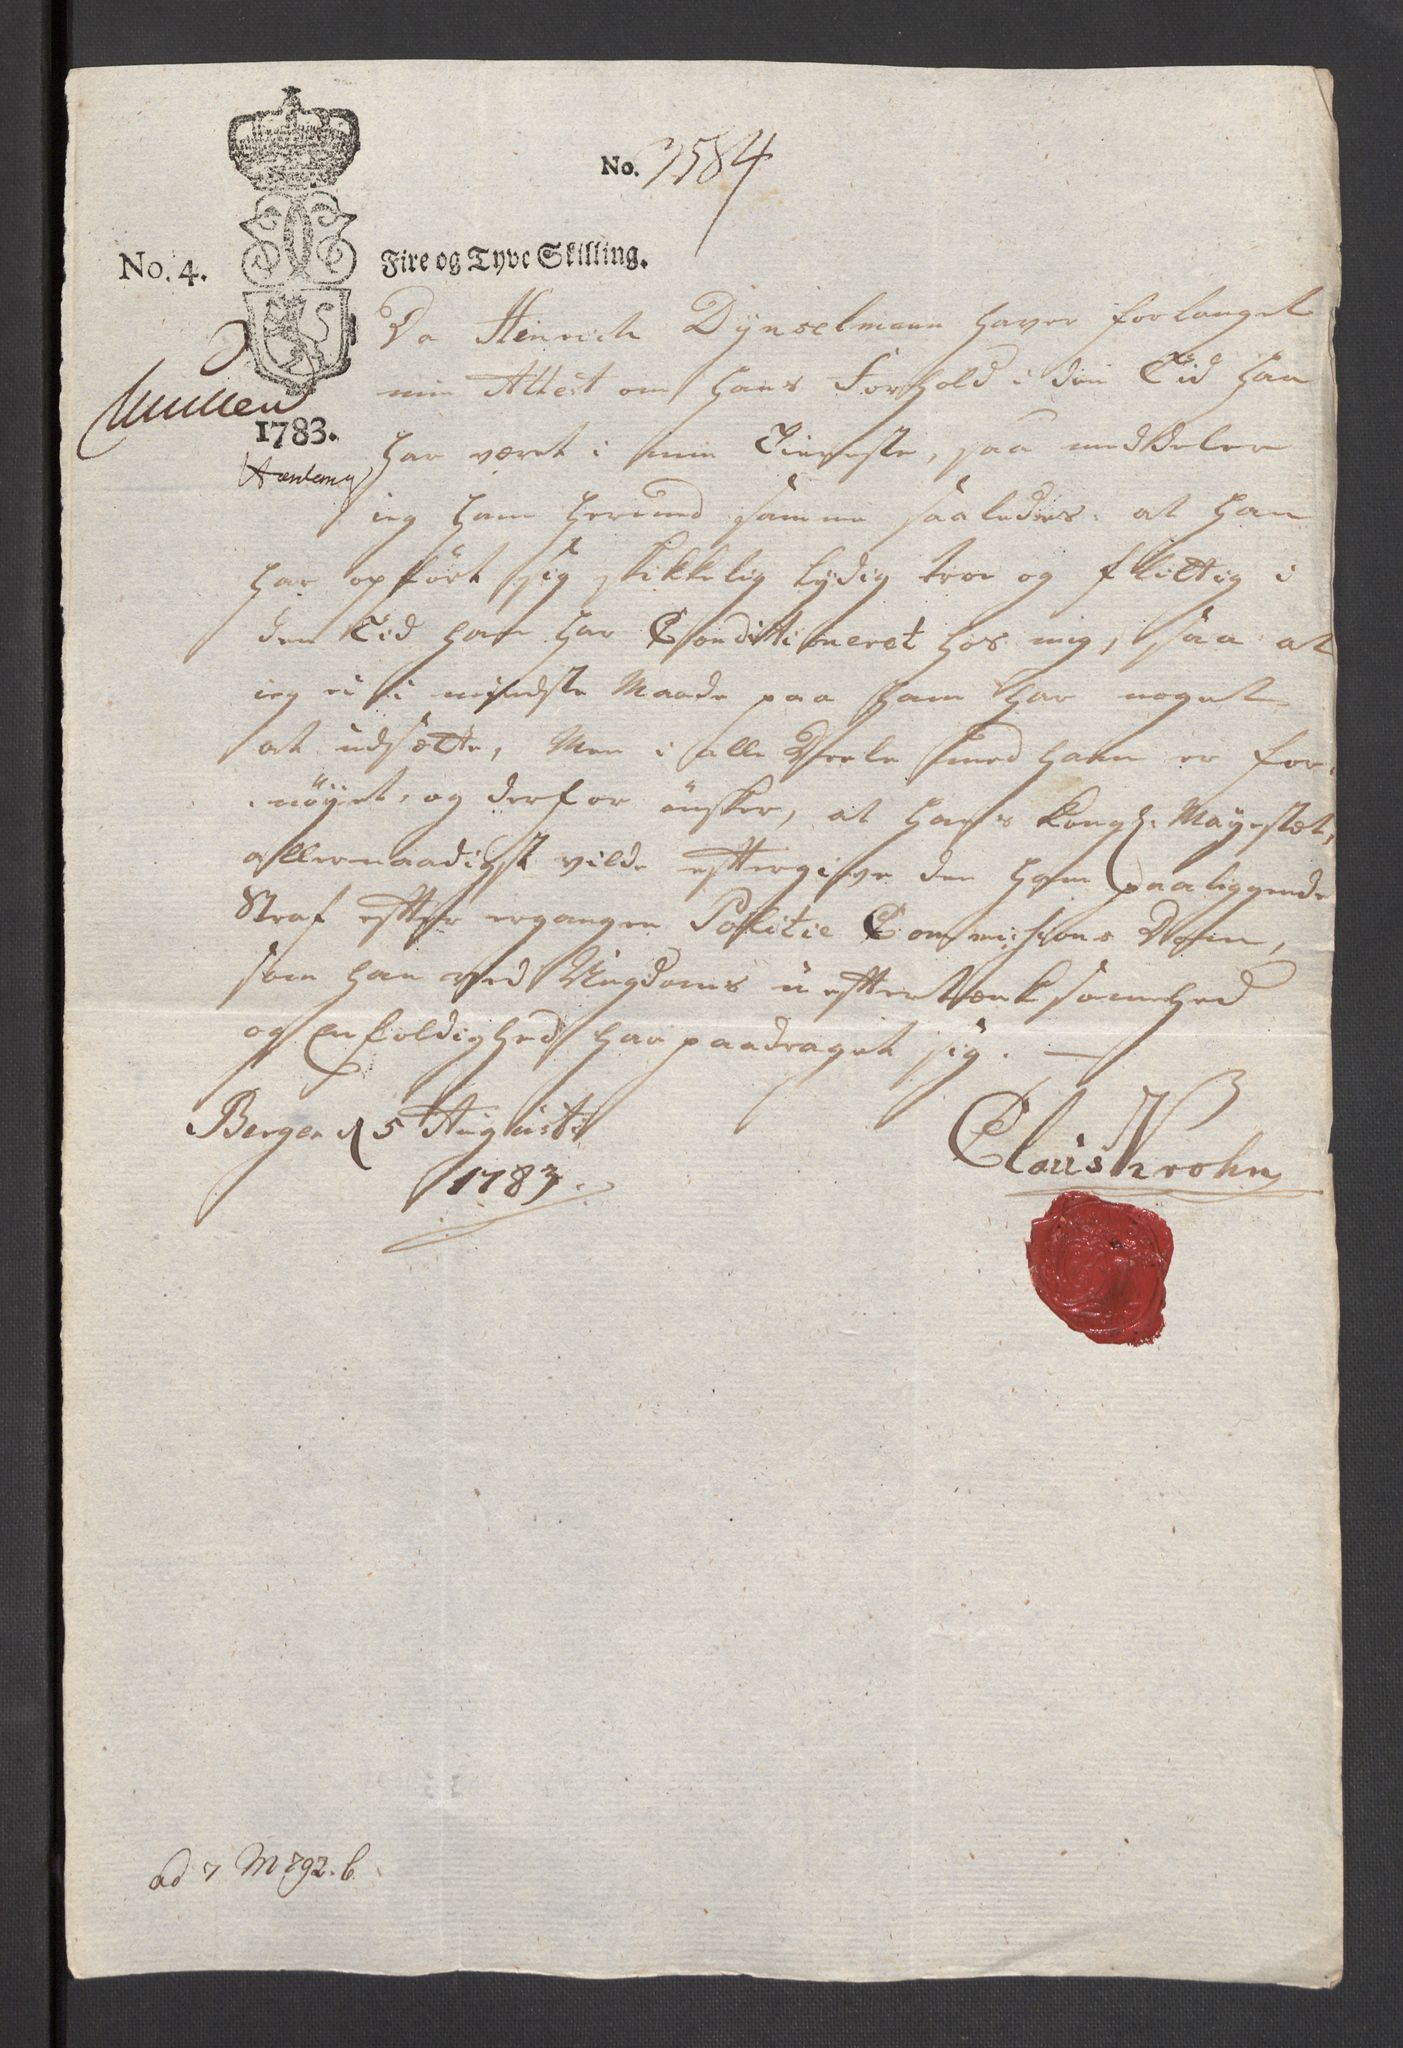 No. 3584
No. 4. Fire og Tyve Skilling.
1783.
Da Henrich Dÿnselmann haver forlanget
min Attest om hans Forhold i den Tid han
har været i min Tieneste, saa meddeler
ieg ham herved samme saaledes: at han
har opført sig skikkelig lydig troe og flittig i
den Tid han har Conditioneret hos mig, saa at
ieg ei i mindste Maade paa ham har noget
at udsætte, Men i alle Deele med ham er for-
nøyet, og derfor ønsker, at Hans Kongl: Mayestæt,
allernaadigst vilde eftergive den ham paaliggende
Straf efter ergangen Politie Commissions Dom,
som han ved Ungdoms uefftertænksomhed
og Enfoldighed har paadraget sig. —
Bergen d 5 Augusti
1783.
Claus Krohn
ad 7 M 792. b.